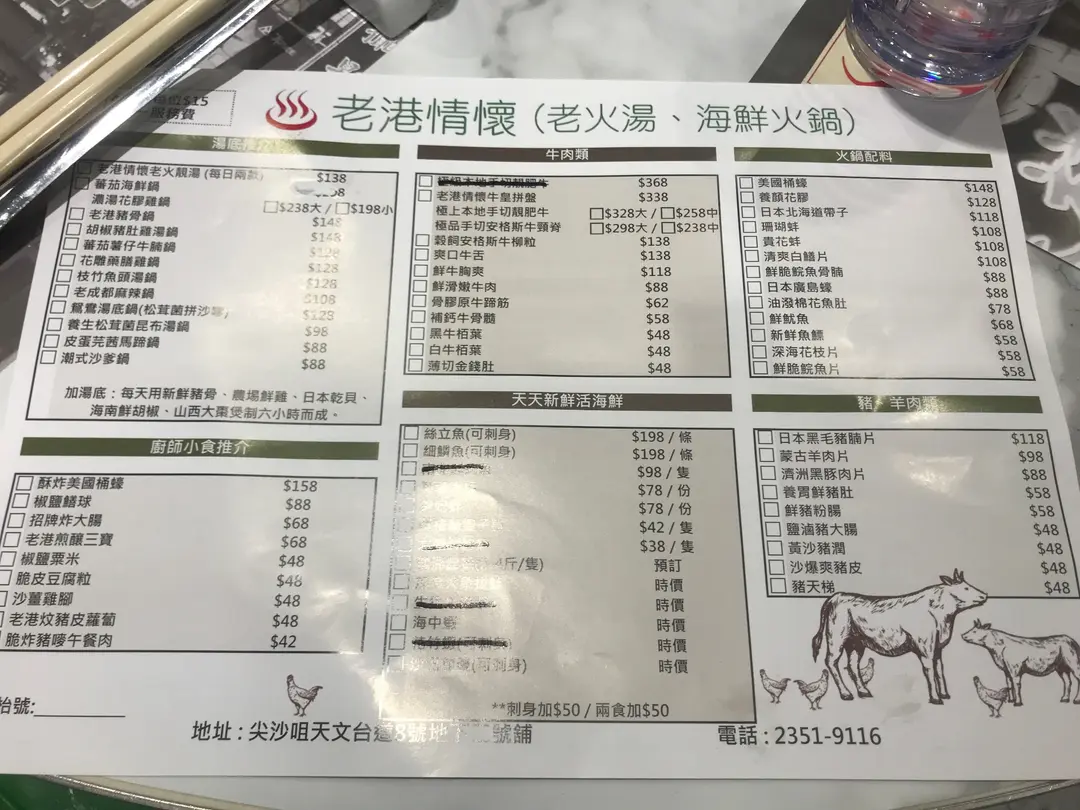 位$15
服務費
老港情懷（老火湯、海鮮火鍋）
湯底推介
老港情懷老火靚湯 (每日兩款) $138
蕃茄海鮮鍋
濃湯花膠雞鍋 $238大 / $198小
老港豬骨鍋 $148
胡椒豬肚雞湯鍋 $148
蕃茄薯仔牛腩鍋 $128
花雕藥膳雞鍋 $128
枝竹魚頭湯鍋 $128
老成都麻辣鍋 $108
鴛鴦湯底鍋(松茸菌拼沙嗲) $128
養生松茸菌昆布湯鍋 $98
皮蛋芫茜馬蹄鍋 $88
潮式沙爹鍋 $88
加湯底：每天用新鮮豬骨、農場鮮雞、日本乾貝、
海南鮮胡椒、山西大棗煲制六小時而成。
廚師小食推介
酥炸美國桶蠔 $158
椒鹽鱔球 $88
招牌炸大腸 $68
老港煎釀三寶 $68
椒鹽粟米 $48
脆皮豆腐粒 $48
沙薑雞腳 $48
老港炆豬皮蘿蔔 $48
脆炸豬嘜午餐肉 $42
枱號:
牛肉類
極級本地手切靚肥牛 $368
老港情懷牛皇拼盤 $338
極上本地手切靚肥牛 $328大 / $258中
極品手切安格斯牛頸脊 $298大 / $238中
穀飼安格斯牛柳粒 $138
爽口牛舌 $138
鮮牛胸爽 $118
鮮滑嫩牛肉 $88
骨膠原牛蹄筋 $62
補鈣牛骨髓 $58
黑牛栢葉 $48
白牛栢葉 $48
薄切金錢肚 $48
天天新鮮活海鮮
絲立魚(可刺身) $198 / 條
细鱗魚(可刺身) $198 / 條
$98 / 隻
$78 / 份
$78 / 份
$42 / 隻
$38 / 隻
斤/隻) 預訂
時價
時價
海中蝦 時價
時價
(可刺身) 時價
**刺身加$50 / 兩食加$50
火鍋配料
美國桶蠔 $148
養顏花膠 $128
日本北海道帶子 $118
珊瑚蚌 $108
貴花蚌 $108
清爽白鱔片 $108
鮮脆鯇魚骨腩 $88
日本廣島蠔 $88
油潑棉花魚肚 $78
鮮魷魚 $68
新鮮魚鰾 $58
深海花枝片 $58
鮮脆鯇魚片 $58
豬、羊肉類
日本黑毛豬腩片 $118
蒙古羊肉片 $98
濟洲黑豚肉片 $88
養胃鮮豬肚 $58
鮮豬粉腸 $58
鹽滷豬大腸 $48
黃沙豬潤 $48
沙爆爽豬皮 $48
豬天梯 $48
地址 : 尖沙咀天文台道8號地下 號舖
電話 : 2351-9116